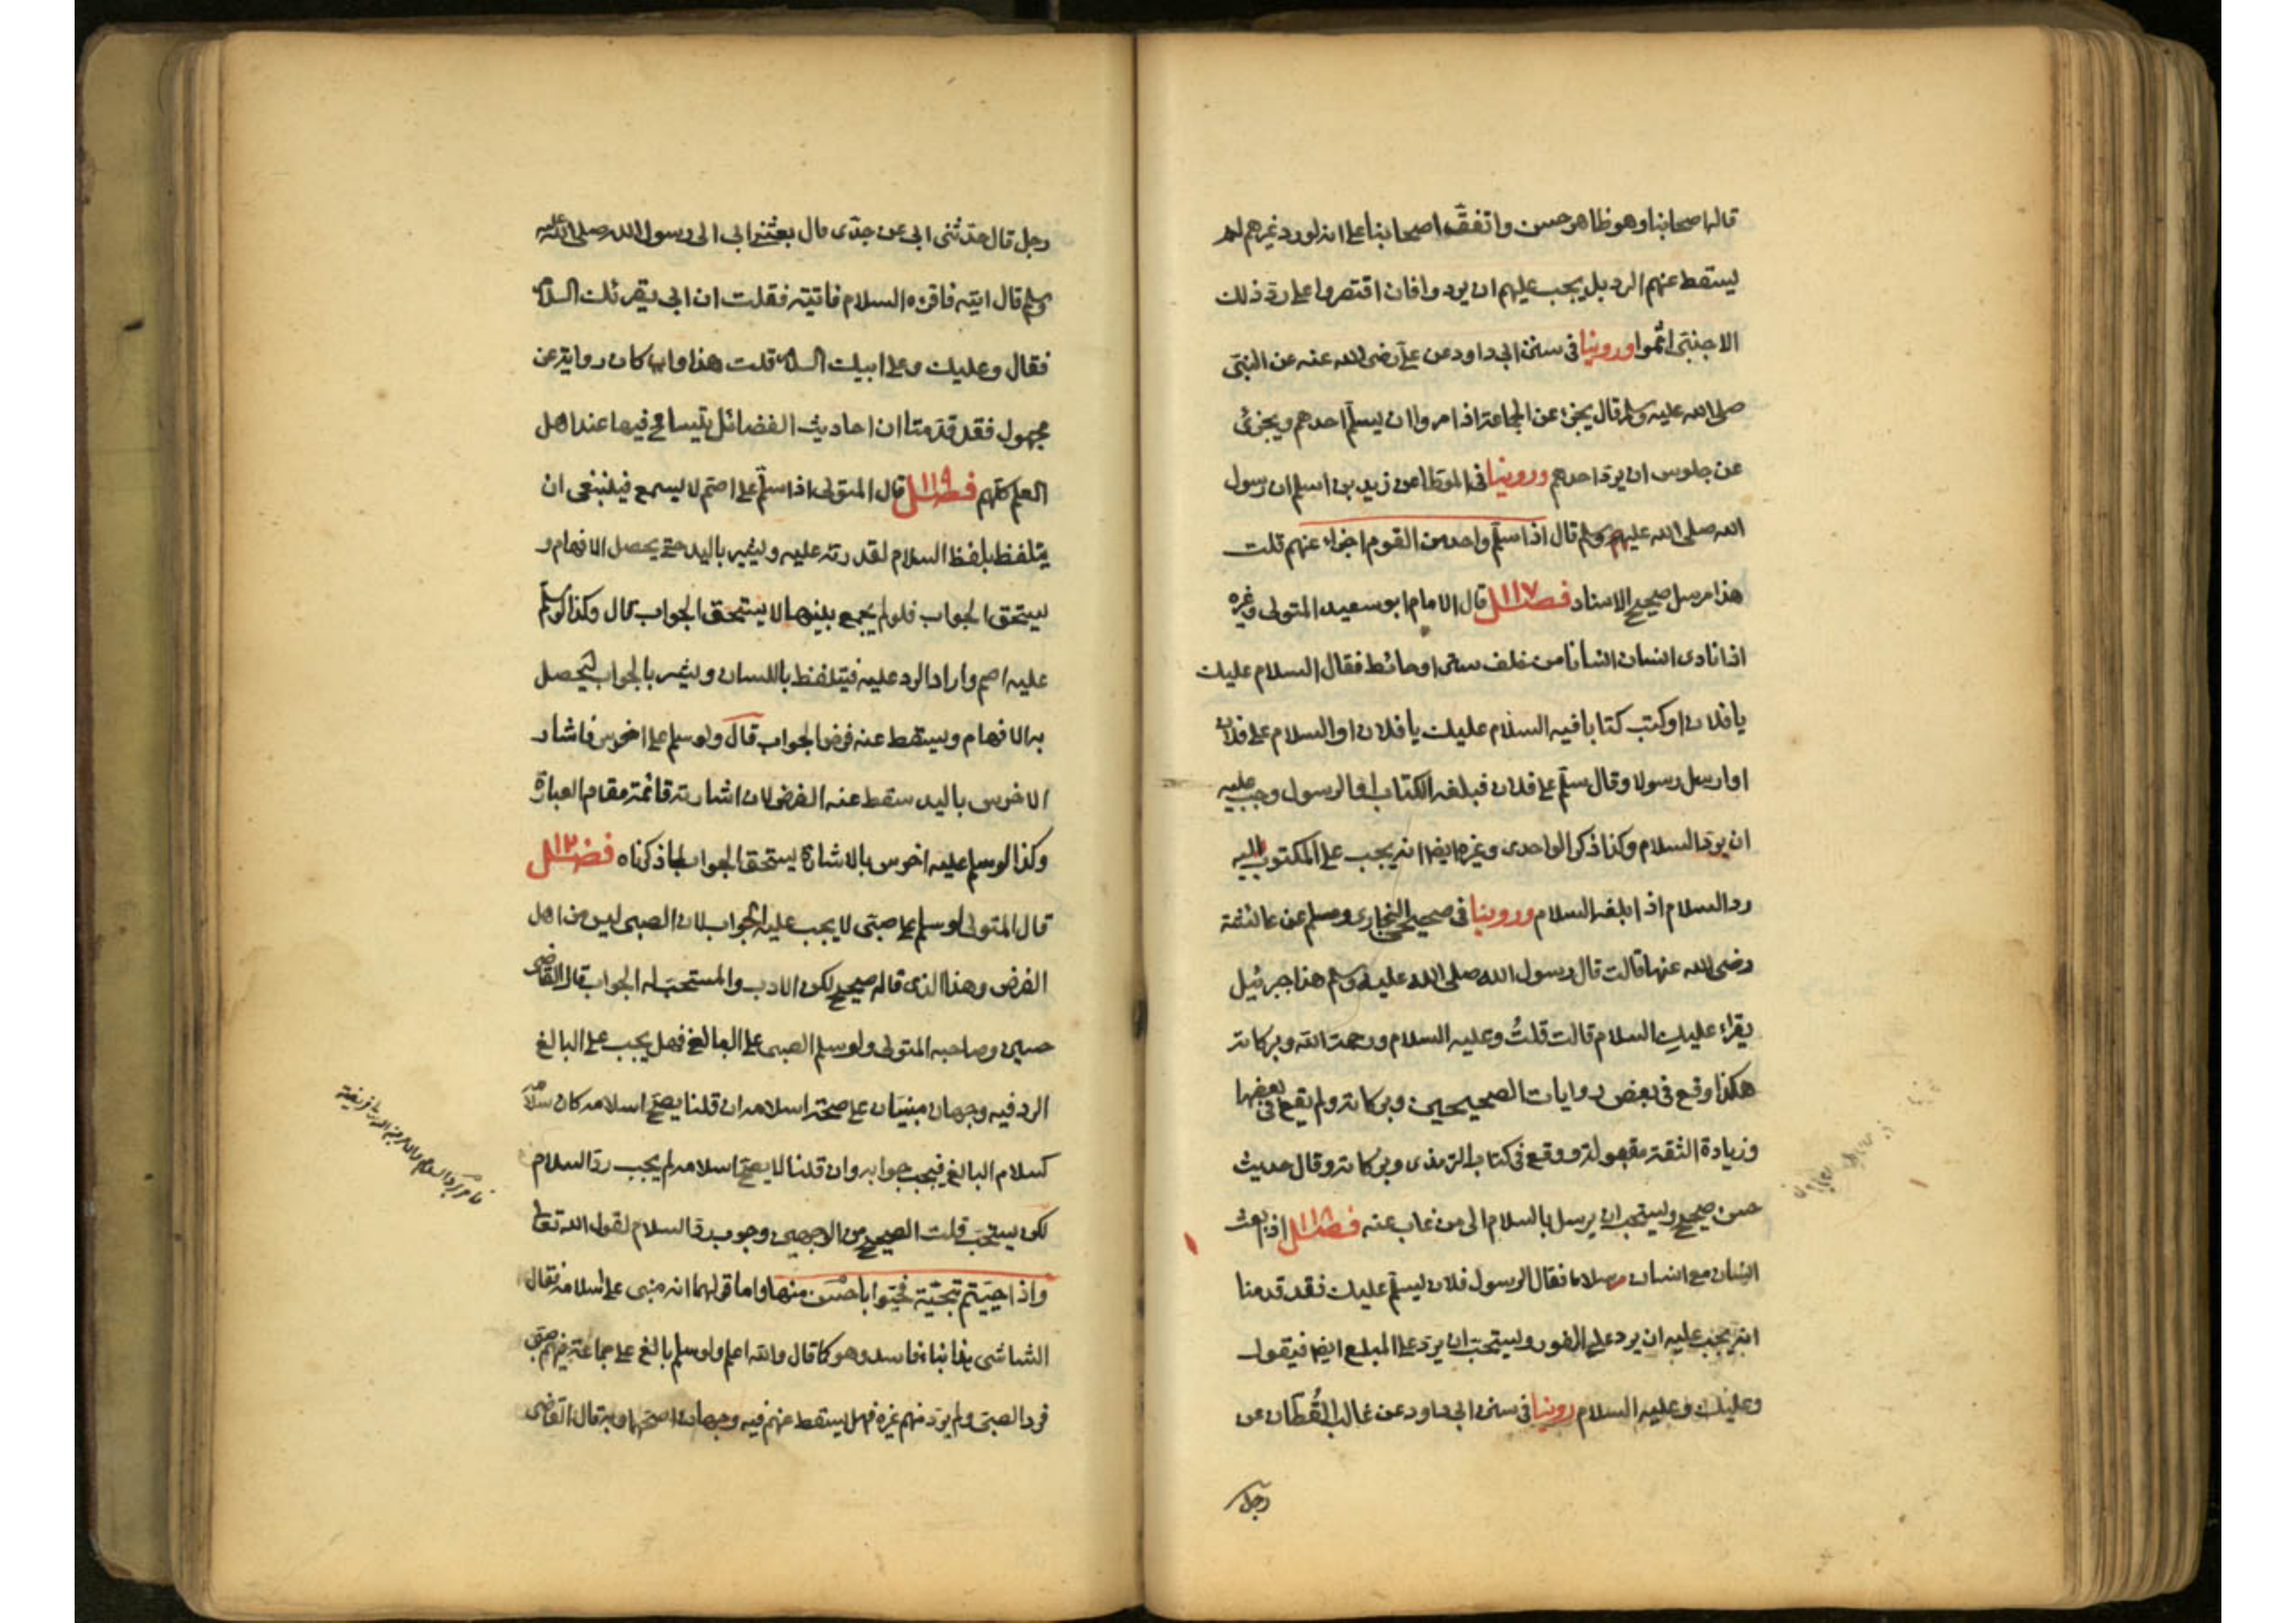 قاله اصحابنا وهو ظاهر حسن واتفق اصحابنا على انه لو رد غيرهم لم
يسقط عنهم الرد بل يجب عليهم ان يردوا فان اقتصروا على رد ذلك
الاجنبي اثموا وروينا في سنن ابي داود عن علي رضى الله عنه عن النبي
صلى الله عليه وسلم قال يجزئ عن الجماعة اذا مروا ان يسلم احدهم ويجزئ
عن جلوس ان يرد احدهم وروينا في الموطا عن زيد بن اسلم ان رسول
الله صلى الله عليه وسلم قال اذا سلم واحد من القوم اجزاء عنهم قلت
هذا مرسل صحيح الاسناد فصل ١١٧ قال الامام ابو سعيد المتولى وغيره
اذا نادى انسان انسانا من خلف ستر او حائط فقال السلام عليك
يا فلان او كتب كتابا فيه السلام عليك يا فلان او السلام على فلان
او ارسل رسولا وقال سلم على فلان فبلغه الكتاب او الرسول وجب عليه
ان يرد السلام وكذا ذكر الواحدى وغيره ايضا انه يجب على المكتوب اليه
رد السلام اذا بلغه السلام وروينا في صحيحي البخارى ومسلم عن عائشة
رضى الله عنها قالت قال رسول الله صلى الله عليه وسلم هذا جبرئيل
يقراء عليك السلام قالت قلتُ وعليه السلام ورحمة الله وبركاته
هكذا وقع في بعض روايات الصحيحين وبركاته ولم يقع في بعضها
وزيادة الثقة مقبولة ووقع في كتاب الترمذى وبركاته وقال حديث
حسن صحيح ويستحب ان يرسل بالسلام الى من غاب عنه فصل ١١٨ اذا بعث
انسان مع انسان سلاما فقال الرسول فلان يسلم عليك فقد قدمنا
انه يجب عليه ان يرد على الفور ويستحب ان يرد على المبلغ ايضا فيقول
وعليك وعليه السلام روينا في سنن ابي داود عن غالب القُطان عن
رجل
رجل قال حدثنى ابي عن جدى قال بعثنى ابي الى رسول الله صلى الله عليه
وسلم قال ايته فاقرئه السلام فاتيته فقلت ان ابي يقرئك السلام
فقال وعليك وعلى ابيك السلام قلت هذا وان كان رواية عن
مجهول فقد قدمنا ان احاديث الفضائل يتسامح فيها عند اهل
العلم كلهم فصل ١١٩ قال المتولى اذا سلم على اصم لا يسمع فينبغى ان
يتلفظ بلفظ السلام لقدرته عليه ويشير باليد حتى يحصل الافهام و
يستحق الجواب فلو لم يجمع بينهما لا يستحق الجواب قال وكذا لو سلم
عليه اصم واراد الرد عليه فيتلفظ باللسان ويشير بالجواب ليحصل
به الافهام ويسقط عنه فرض الجواب قال ولو سلم على اخرس فاشار
الاخرس باليد سقط عنه الفرض لان اشارته قائمة مقام العبارة
وكذا لو سلم عليه اخرس بالاشارة يستحق الجواب لما ذكرناه فصل ١٢٠
قال المتولى لو سلم على صبى لا يجب عليه الجواب لان الصبى ليس من اهل
الفرض وهذا الذى قاله صحيح لكن الادب والمستحب له الجواب قال القاضى
حسين وصاحبه المتولى ولو سلم الصبى على البالغ فهل يجب على البالغ
الرد فيه وجهان مبنيان على صحة اسلامه ان قلنا يصح اسلامه كان سلامه
كسلام البالغ فيجب جوابه وان قلنا لا يصح اسلامه لم يجب رد السلام
لكن يستحب قلت الصحيح من الوجهين وجوب رد السلام لقول الله تعالى
واذا حييتم بتحية فحيوا باحسن منها واما قولهما انه مبنى على اسلامه فقال
الشاشى هذا بناء فاسد وهو كما قال والله اعلم ولو سلم بالغ على جماعة فيهم صبى
فرد الصبى ولم يرد منهم غيره فهل يسقط عنهم فيه وجهان اصحهما وبه قال القاضى